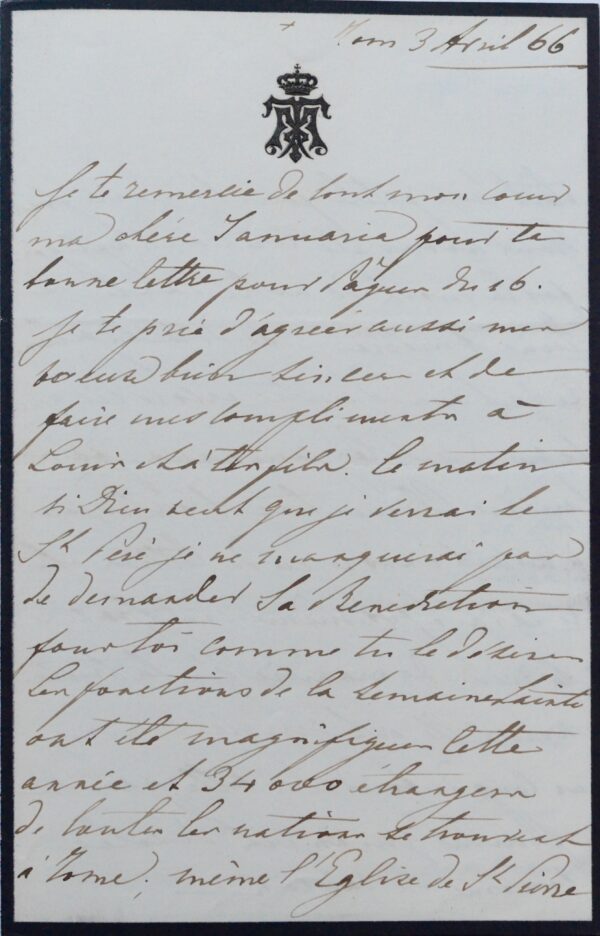 Rom 3 Avril 66
Je te remercie de tout mon cœur
ma chére Januaria pour ta
bonne lettre pour Pâques du 16.
Je te prie d'agréer aussi mes
voeux bien sinceres et de
faire mes compliments à
Louis et à tes fils. Ce matin
si Dieu veut que je verrai le
St. Pére je ne manquerai pas
de demander Sa Benediction
pour toi comme tu le désires
Les fonctions de la Semaine Sainte
ont été magnifiques cette
année et 34000 étrangers
de toutes les nations se trouvent
à Rome, même l'Eglise de St. Pierre